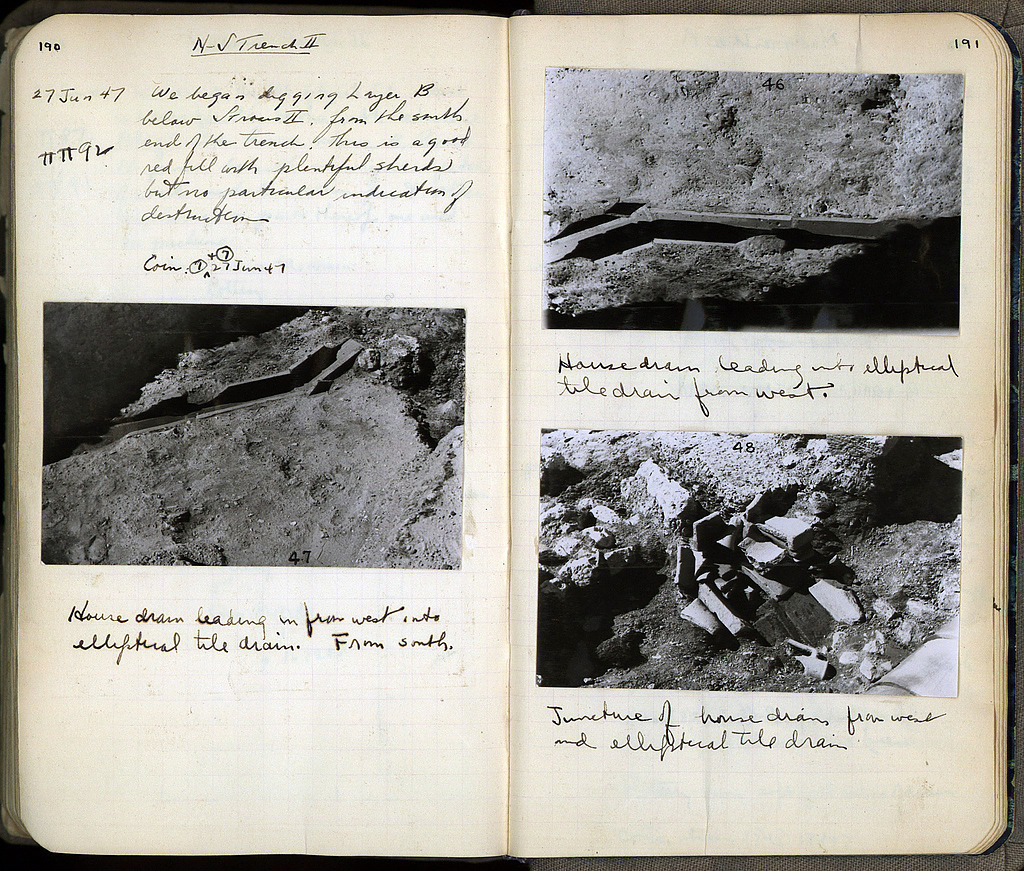 190
N-S Trench II
27 Jun 47
We began digging Layer B
below Stroses II, from the south
end of the trench. This is a good
red fill with plentiful sherds
but no particular indication of
destruction
ΠΠ92
Coin: 1 + 7 27 Jun 47
47
House drain leading in from west into
elliptical tile drain. From south.
191
46
House drain leading into elliptical
tile drain from west.
48
Juncture of house drain from west
and elliptical tile drain